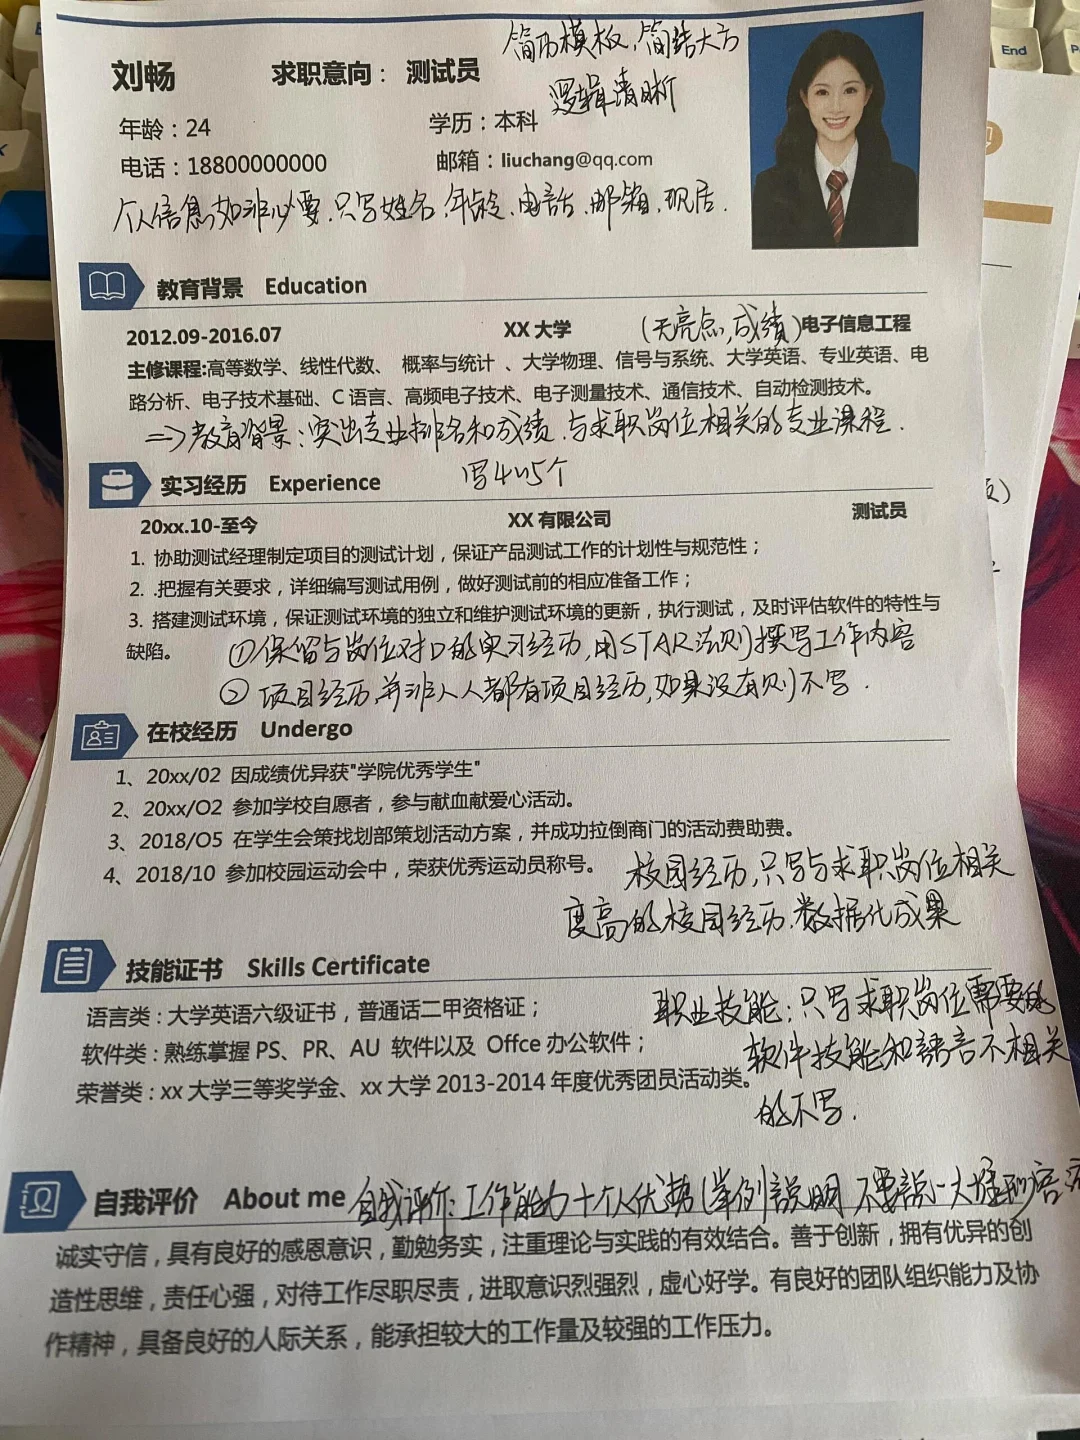 End
简历模板,简结大方
刘畅 求职意向： 测试员
逻辑清晰
年龄：24 学历：本科
电话：18800000000 邮箱：liuchang@qq.com
个人信息,如非必要,只写姓名、年龄、电话、邮箱、现居.
教育背景 Education
2012.09-2016.07 XX 大学 (无亮点,成绩) 电子信息工程
主修课程:高等数学、线性代数、 概率与统计 、大学物理、信号与系统、大学英语、专业英语、电
路分析、电子技术基础、C 语言、高频电子技术、电子测量技术、通信技术、自动检测技术。
=>教育背景:突出专业排名和成绩,与求职岗位相关的专业课程.
写4~5个
实习经历 Experience
20xx.10-至今 XX 有限公司 测试员
1. 协助测试经理制定项目的测试计划，保证产品测试工作的计划性与规范性；
2. .把握有关要求，详细编写测试用例，做好测试前的相应准备工作；
3. 搭建测试环境，保证测试环境的独立和维护测试环境的更新，执行测试，及时评估软件的特性与
缺陷。
①保留与岗位对口的实习经历,用STAR法则撰写工作内容
② 项目经历,并非人人都有项目经历,如果没有则不写.
在校经历 Undergo
1、20xx/02 因成绩优异获"学院优秀学生"
2、20xx/O2 参加学校自愿者，参与献血献爱心活动。
3、2018/O5 在学生会策找划部策划活动方案，并成功拉倒商门的活动费助费。
4、2018/10 参加校园运动会中，荣获优秀运动员称号。
校园经历,只写与求职岗位相关
度高的校园经历.数据化成果
技能证书 Skills Certificate
语言类：大学英语六级证书，普通话二甲资格证；
软件类：熟练掌握 PS、PR、AU 软件以及 Offce 办公软件；
荣誉类：xx 大学三等奖学金、xx 大学 2013-2014 年度优秀团员活动类。
职业技能:只写求职岗位需要的
软件技能和語言不相关
的不写.
自我评价 About me
自我评价:工作能力+个人优势(举例説明 不要說一大堆
诚实守信，具有良好的感恩意识，勤勉务实，注重理论与实践的有效结合。善于创新，拥有优异的创
造性思维，责任心强，对待工作尽职尽责，进取意识烈强烈，虚心好学。有良好的团队组织能力及协
作精神，具备良好的人际关系，能承担较大的工作量及较强的工作压力。